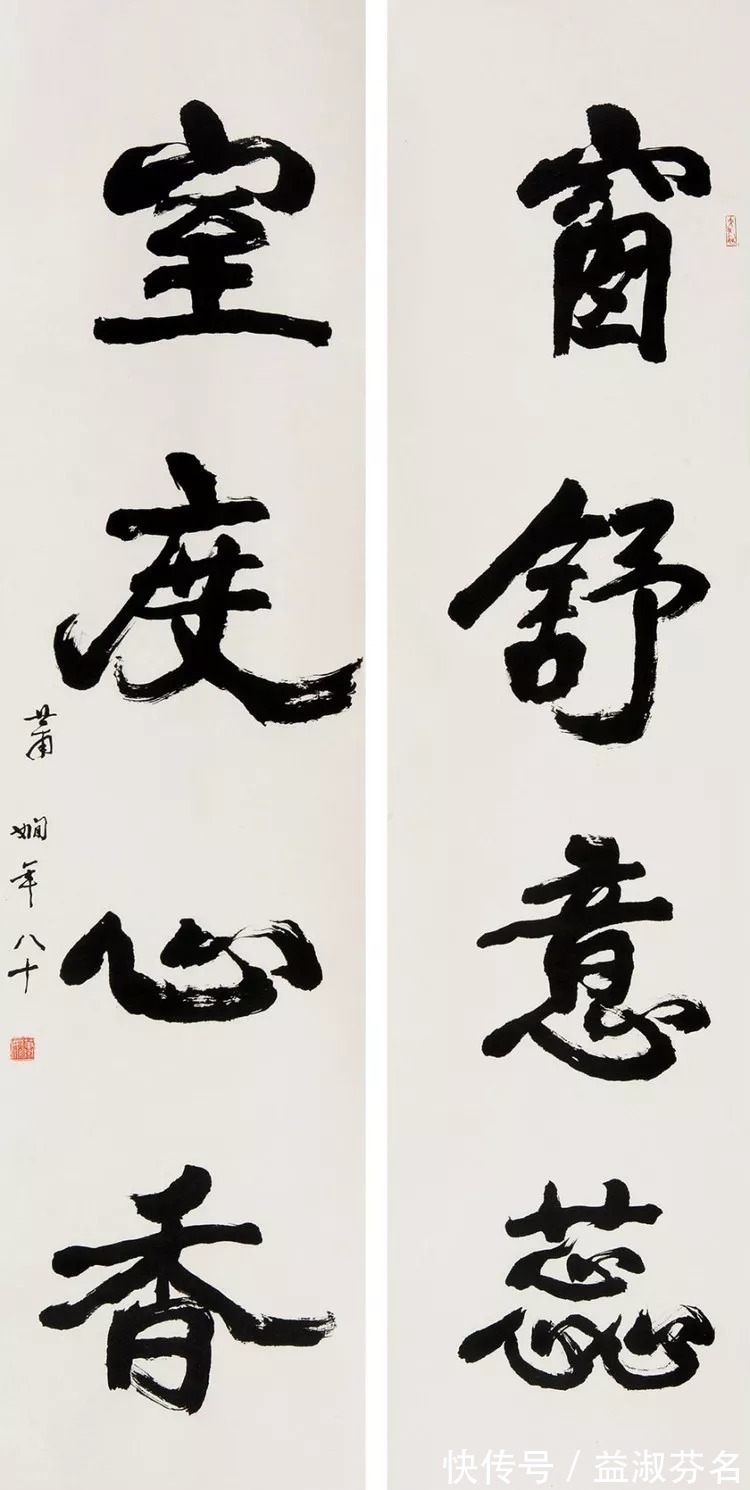 窗舒意蕊
室度心香
萧娴年八十
快传号 / 益淑芬名